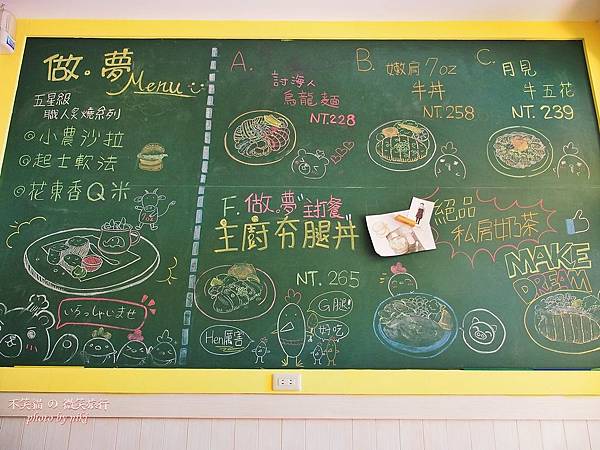 做。夢Menu
五星級
職人炙燒系列
◎小農沙拉
◎起士軟法
◎花東香Q米
いらっしゃいませ
A.
討海人
烏龍麵
NT.228
B.
嫩肩7oz
牛丼
NT.258
C.
月見
牛五花
NT.239
F. 做。夢"主打餐"
主廚夯腿丼
NT.265
Hen厲害
G腿!
好吃
絕品
私房奶茶
MAKE
DREAM
不笑猫の微笑旅行
photo by miki